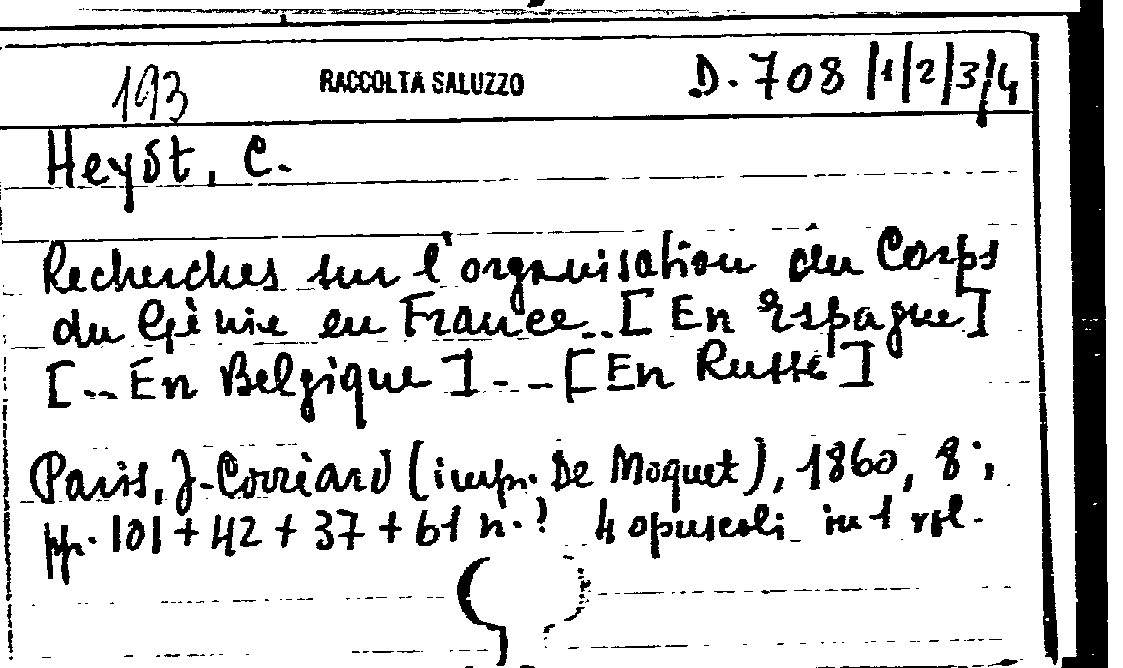 193 RACCOLTA SALUZZO D. 708 |1|2|3|4
Heyst, C.
Recherches sur l'organisation du Corps
du Génie en France..[En Espagne]
[..En Belgique]...[En Russe]
Paris, J. Corréard (imp. De Moquet), 1860, 8°,
pp. 101 + 42 + 37 + 61 n.? 4 opuscoli in 1 vol.